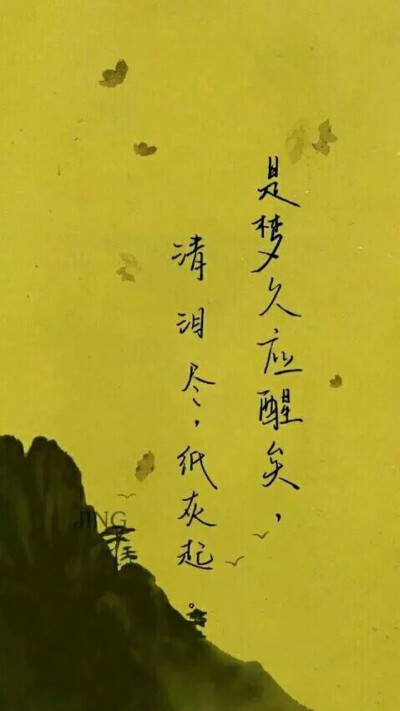 是梦久应醒矣，
清泪尽，纸灰起。
JING